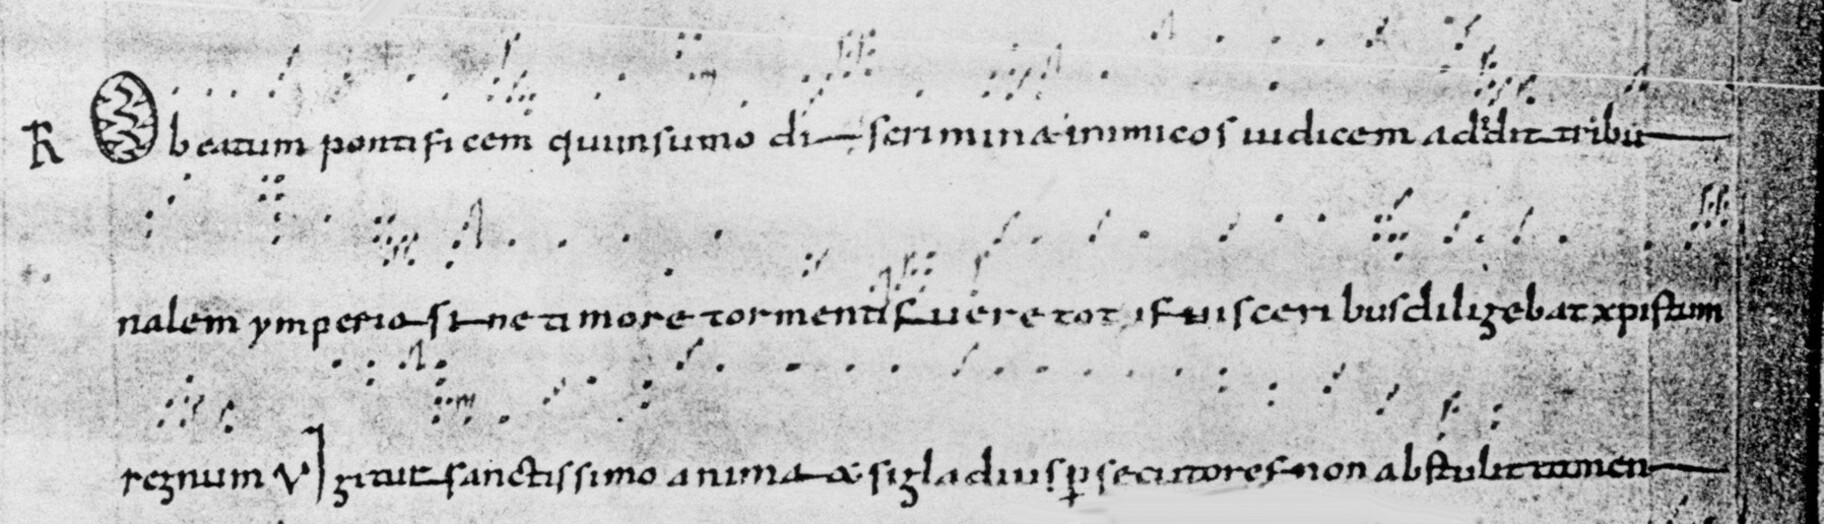 R O beatum pontificem qui in sumo di— scrimina inimicos iudicem addidit tribu—
nalem ymperio si—ne timore tormentis uere totis uisceribus diligebat xpistum
regnum V Igitur sanctissimo anima & si gladius persecutores non abstulit tamen—